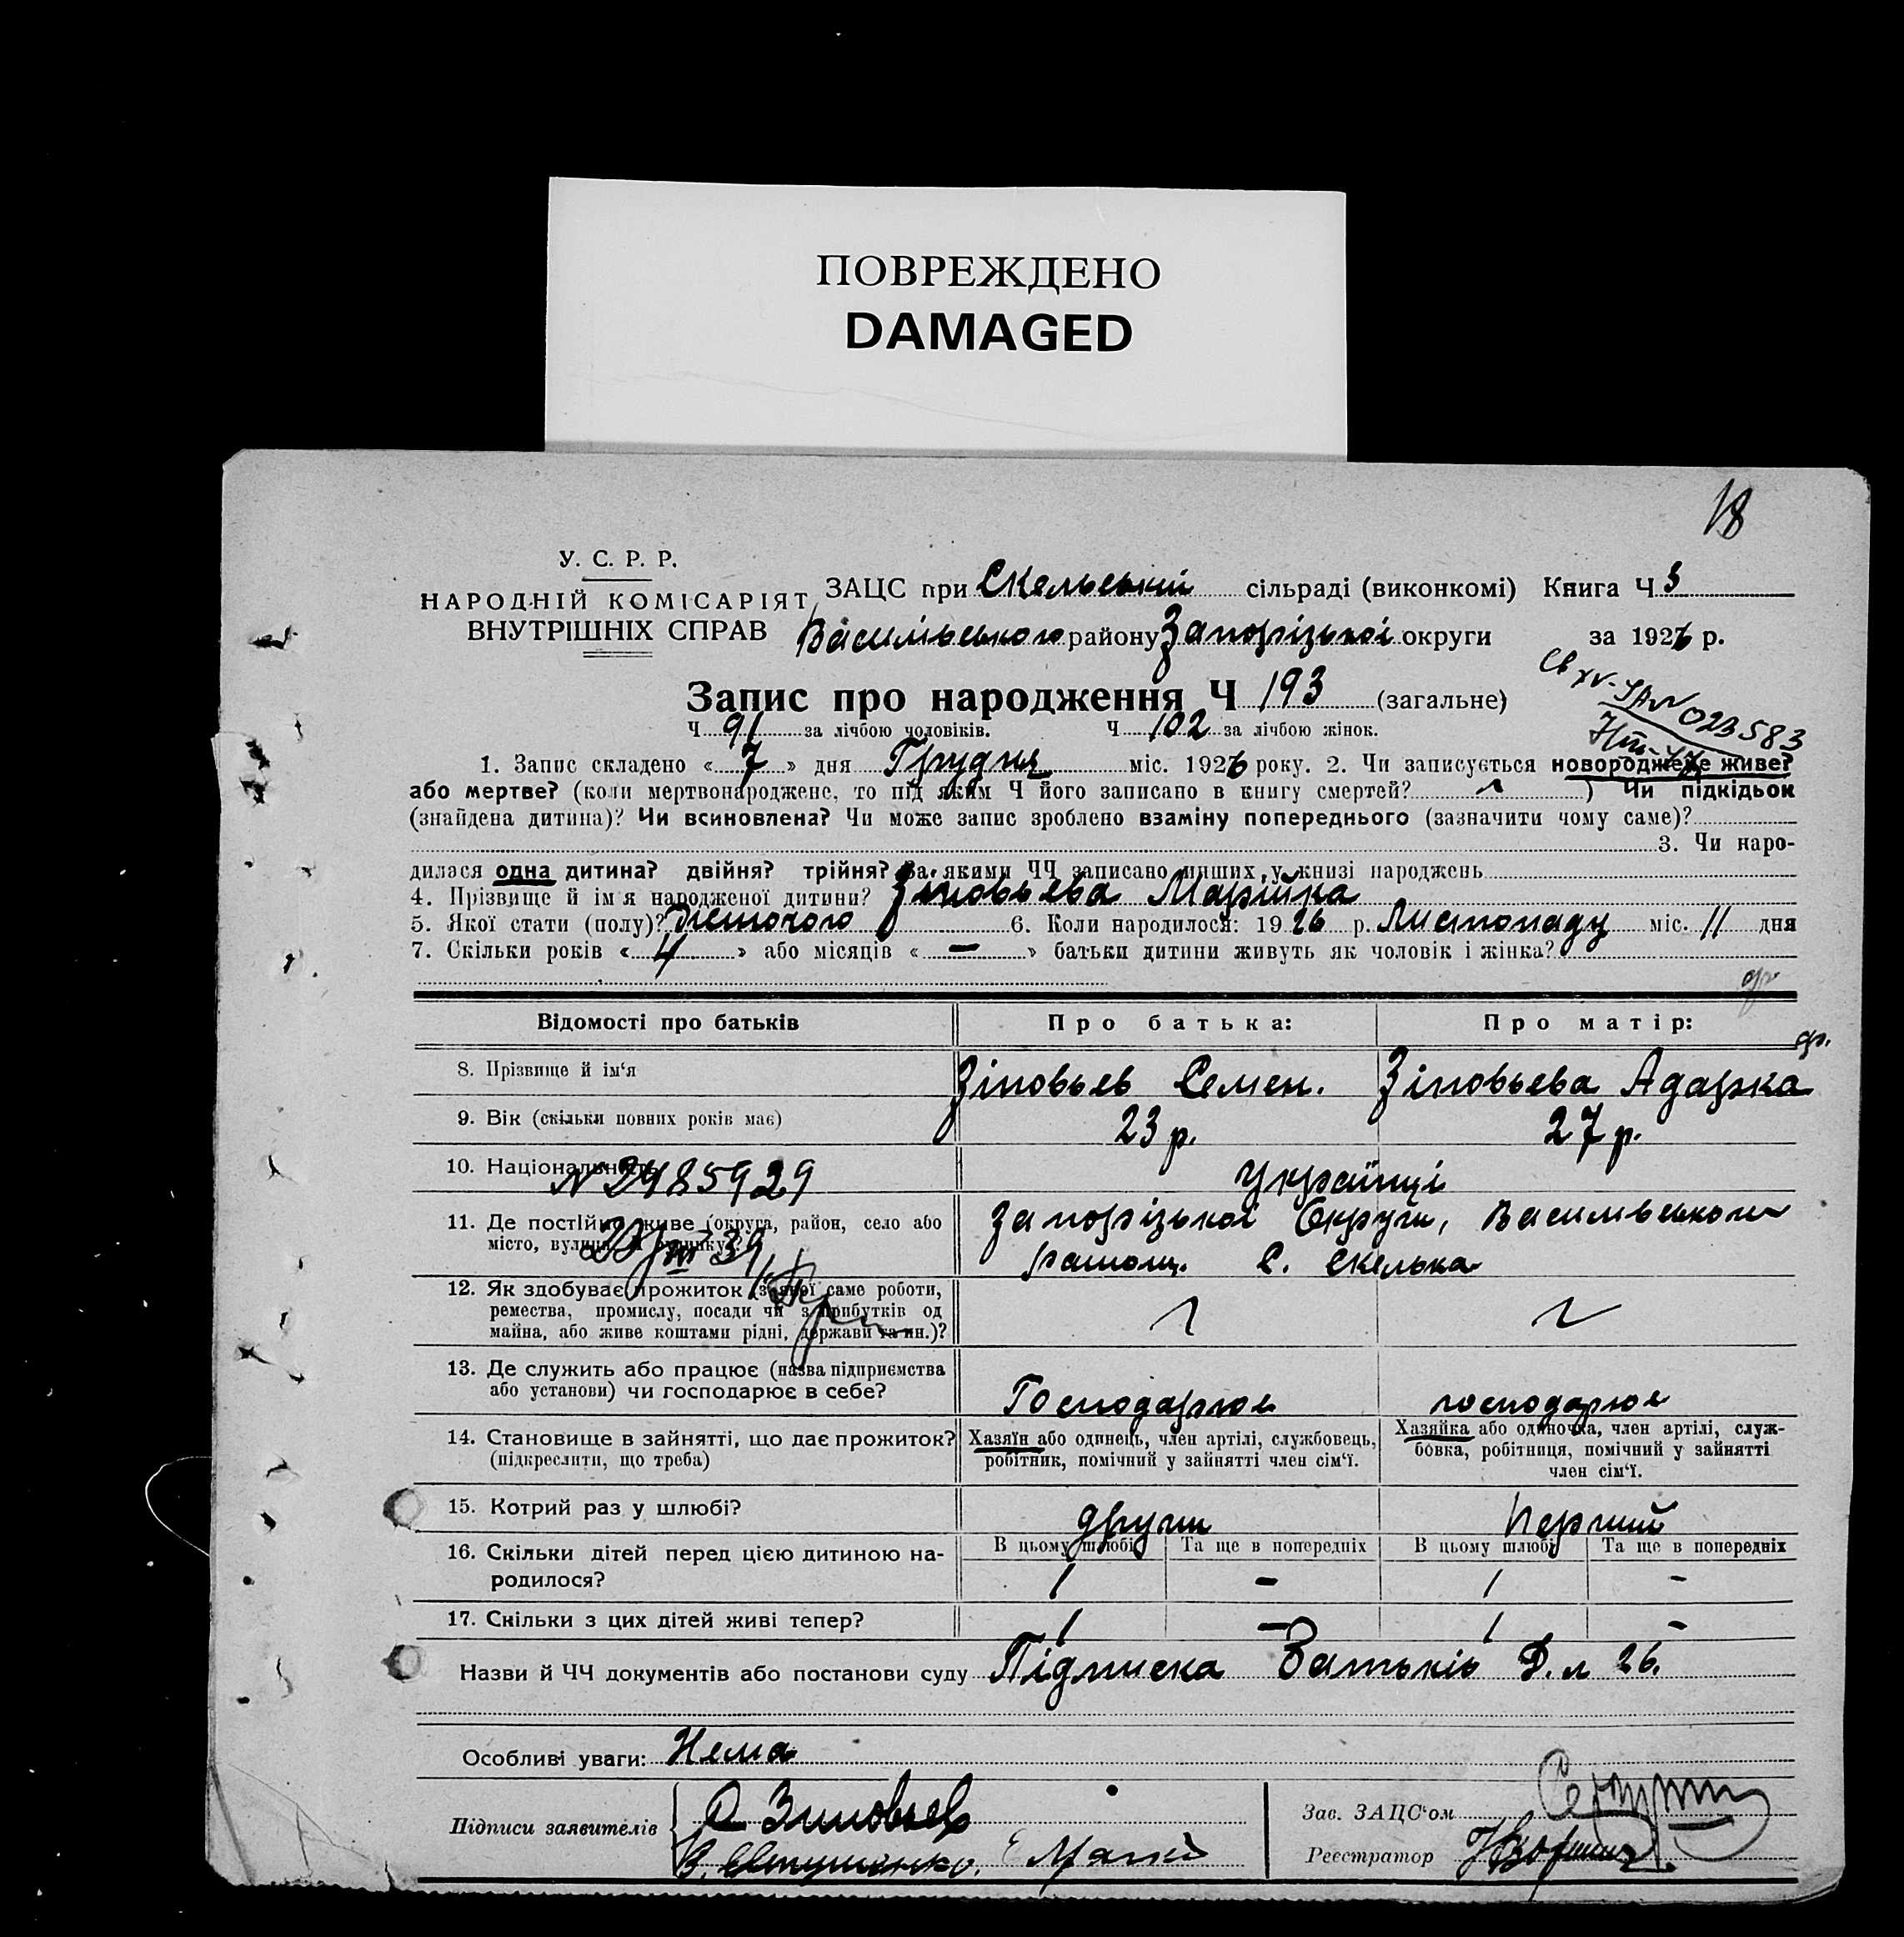 ПОВРЕЖДЕНО
DAMAGED
18
У. С. Р. Р.
НАРОДНІЙ КОМІСАРІЯТ
ВНУТРІШНІХ СПРАВ
ЗАЦС при Скельській сільраді (виконкомі) Книга Ч 3
Василівського району Запорізької округи за 1926 р.
Запис про народження Ч 193 (загальне)
023583
Ч 91 за лічбою чоловіків. Ч 102 за лічбою жінок.
1. Запис складено «7» дня Грудня міс. 1926 року. 2. Чи записується новороджене живе?
або мертве? (коли мертвонароджене, то під яким Ч його записано в книгу смертей? ) Чи підкідьок
(знайдена дитина)? Чи всиновлена? Чи може запис зроблено взаміну попереднього (зазначити чому саме)?
3. Чи наро-
дилася одна дитина? двійня? трійня? За якими ЧЧ записано инших у книзі народжень
4. Прізвище й ім'я народженої дитини? Зіновьева Марійка
5. Якої стати (полу)? жіночого 6. Коли народилося: 1926 р. Листопаду міс. 11 дня
7. Скільки років «4» або місяців «—» батьки дитини живуть як чоловік і жінка?
Відомості про батьків Про батька: Про матір:
8. Прізвище й ім'я Зіновьев Семен. Зіновьева Адарка
9. Вік (скільки повних років має) 23 р. 27 р.
10. Національність Українці
N 2485929
11. Де постійно живе (округа, район, село або Запорізької Округи, Василівського
місто, вулиця й будинку)? району. С. Скелька
12. Як здобуває прожиток (з якої саме роботи,
ремества, промислу, посади чи з прибутків од
майна, або живе коштами рідні, держави та ин.)?
13. Де служить або працює (назва підприємства
або установи) чи господарює в себе? Господарює господарює
14. Становище в зайнятті, що дає прожиток? Хазяїн або одинець, член артілі, службовець, Хазяйка або одиночка, член артілі, служ-
(підкреслити, що треба) робітник, помічний у зайнятті член сім'ї. бовка, робітниця, помічний у зайнятті
член сім'ї.
15. Котрий раз у шлюбі? други перший
16. Скільки дітей перед цією дитиною на- В цьому шлюбі Та ще в попередніх В цьому шлюбі Та ще в попередніх
родилося? 1 - 1 -
17. Скільки з цих дітей живі тепер? 1 - 1 -
Назви й ЧЧ документів або постанови суду Підписка Батьків Д. л 26.
Особливі уваги: Нема
Підписи заявителів С Зиновьев Зав. ЗАЦС'ом
В. Евтушенко. Реєстратор